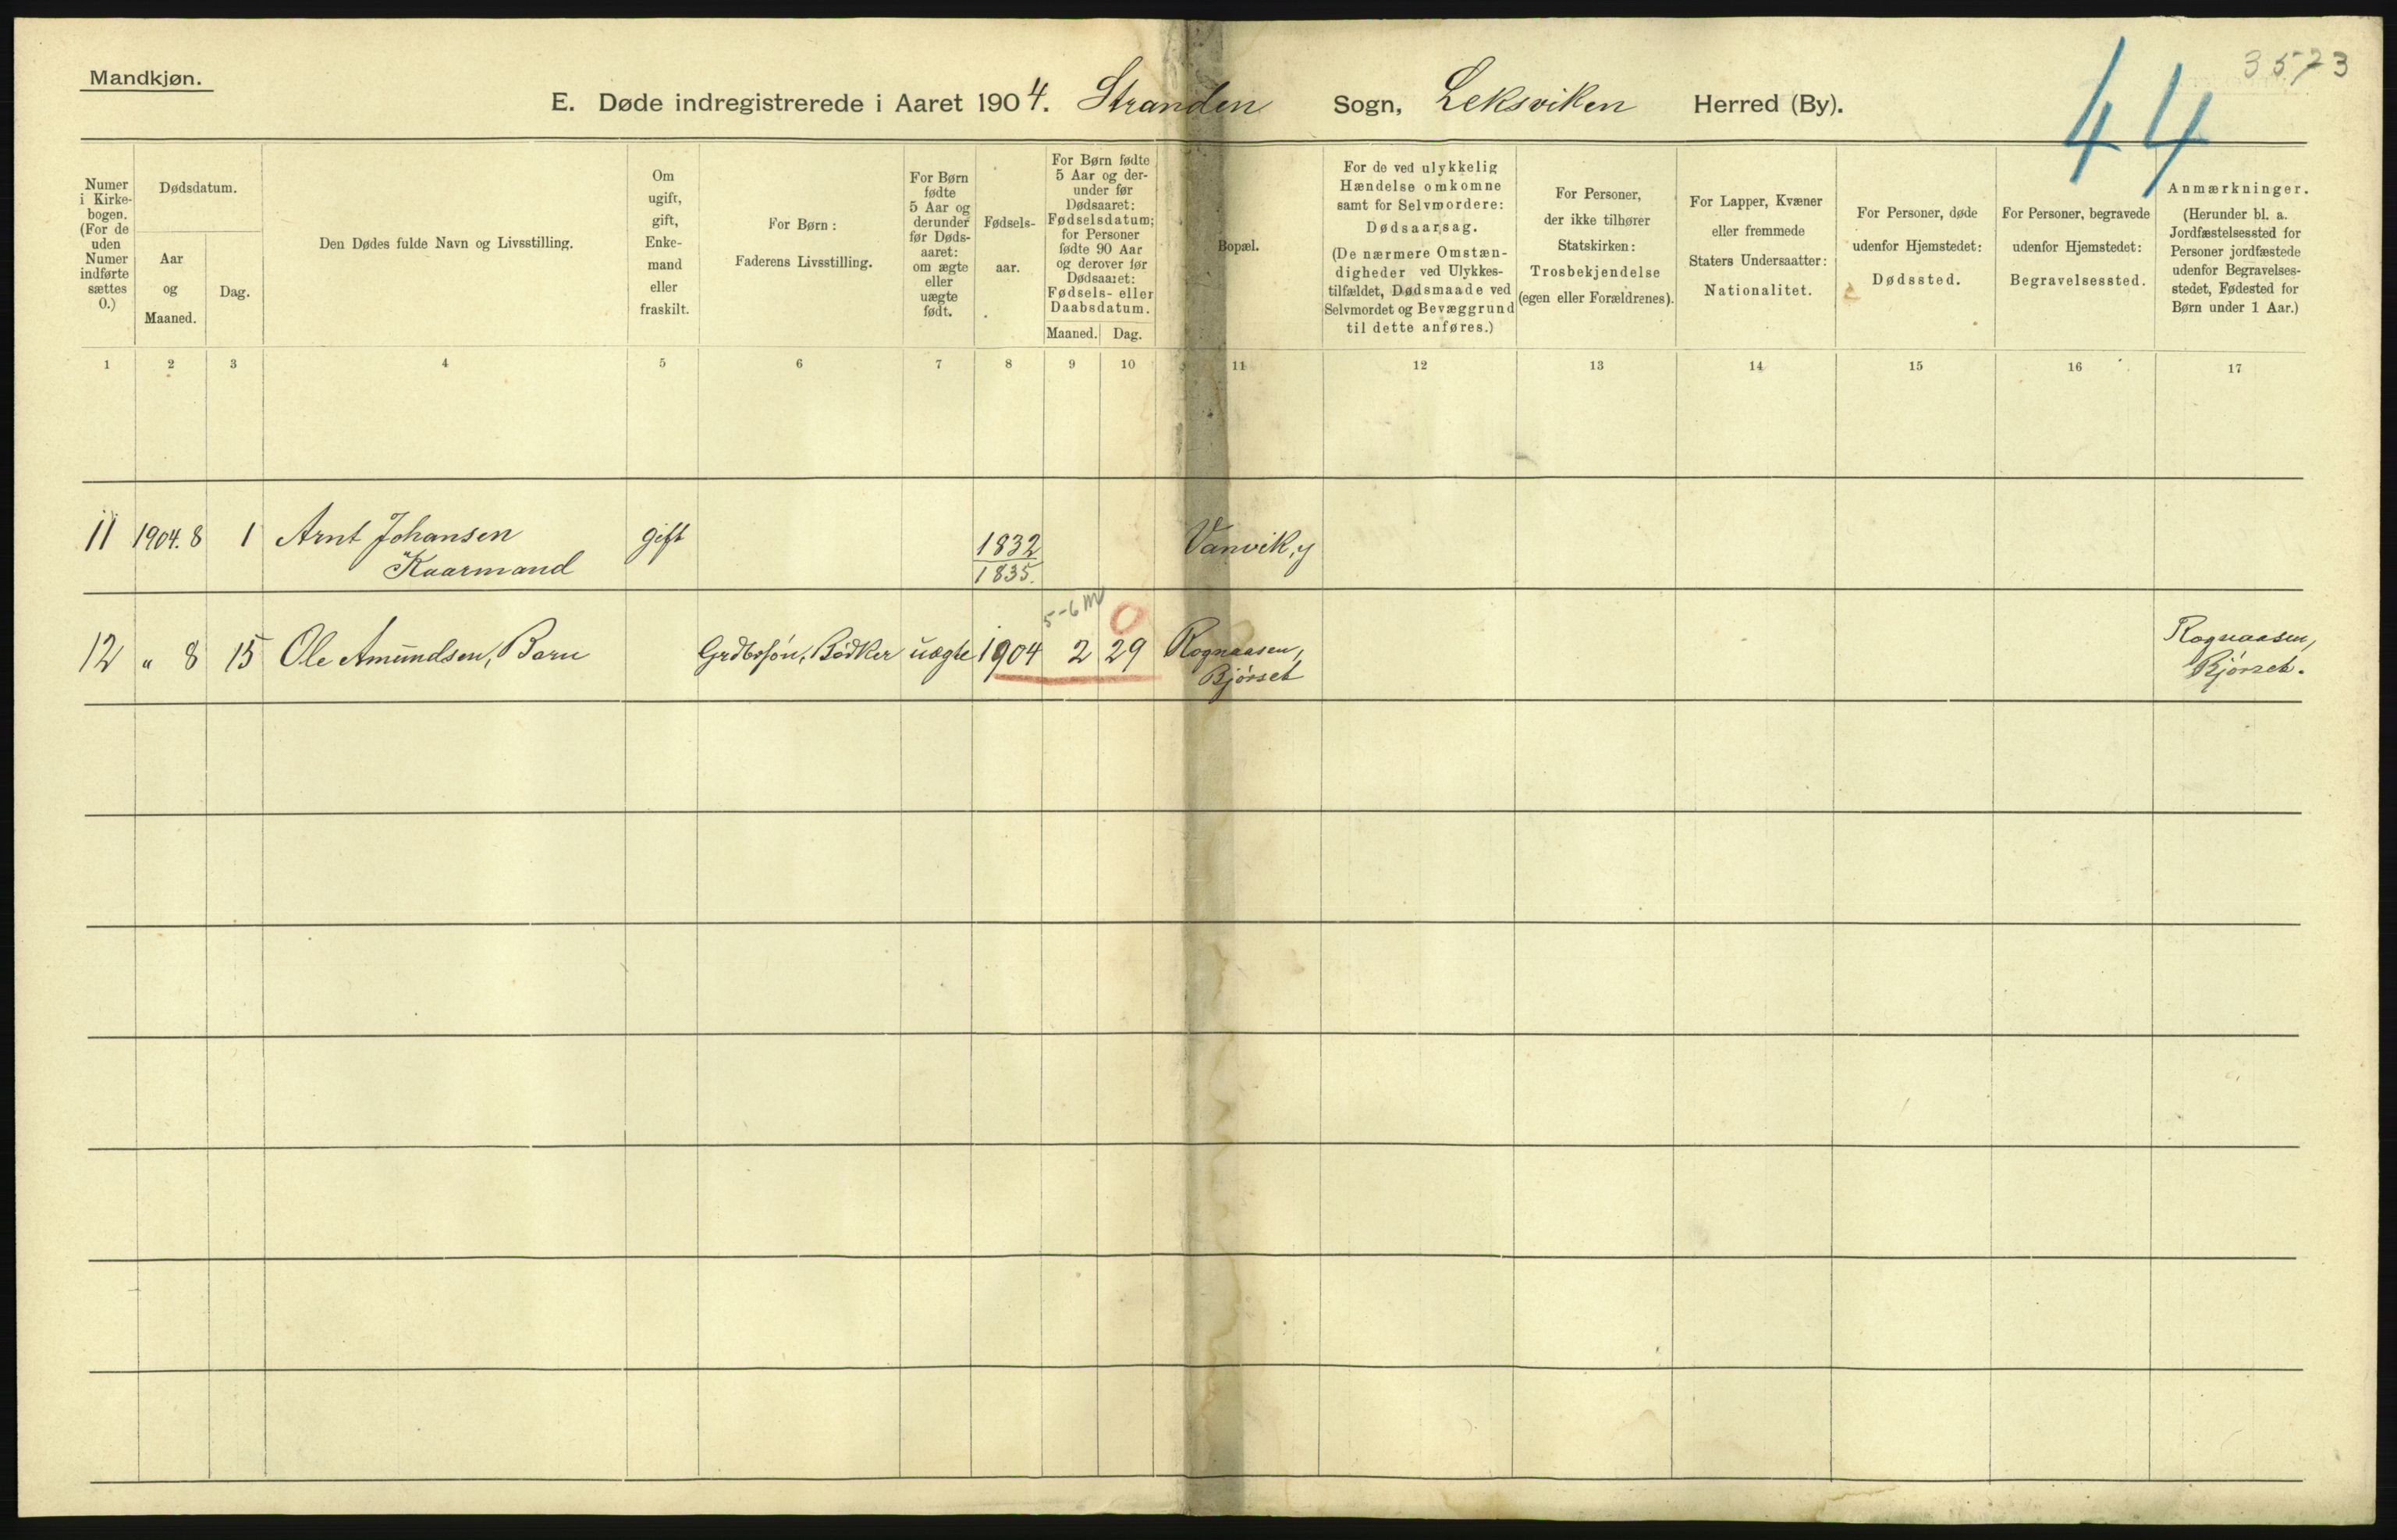 Mandkjøn.
3573
44
E. Døde indregistrerede i Aaret 1904. Stranden Sogn, Leksviken Herred (By).
Numer i Kirke-bogen. (For de uden Numer indførte sættes 0.)
Dødsdatum.
Aar og Maaned.
Dag.
Den Dødes fulde Navn og Livsstilling.
Om ugift, gift, Enke-mand eller fraskilt.
For Børn: Faderens Livsstilling.
For Børn fødte 5 Aar og derunder før Døds-aaret: om ægte eller uægte født.
Fødsels-aar.
For Børn fødte 5 Aar og der-under før Dødsaaret: Fødselsdatum; for Personer fødte 90 Aar og derover før Dødsaaret: Fødsels- eller Daabsdatum.
Maaned. Dag.
Bopæl.
For de ved ulykkelig Hændelse omkomne samt for Selvmordere: Dødsaarsag. (De nærmere Omstæn-digheder ved Ulykkes-tilfældet, Dødsmaade ved Selvmordet og Bevæggrund til dette anføres.)
For Personer, der ikke tilhører Statskirken: Trosbekjendelse (egen eller Forældrenes).
For Lapper, Kvæner eller fremmede Staters Undersaatter: Nationalitet.
For Personer, døde udenfor Hjemstedet: Dødssted.
For Personer, begravede udenfor Hjemstedet: Begravelsessted.
Anmærkninger. (Herunder bl. a. Jordfæstelsessted for Personer jordfæstede udenfor Begravelses-stedet, Fødested for Børn under 1 Aar.)
1 2 3 4 5 6 7 8 9 10 11 12 13 14 15 16 17
11 1904. 8 1 Arnt Johansen gift 1832 Vanvik, y
Kaarmand 1835.
5-6 m 0
12 " 8 15 Ole Amundsen, Barn Grdbrsøn, Bødker uægte 1904 2 29 Rognaasen, Rognaasen,
Bjørset Bjørset.